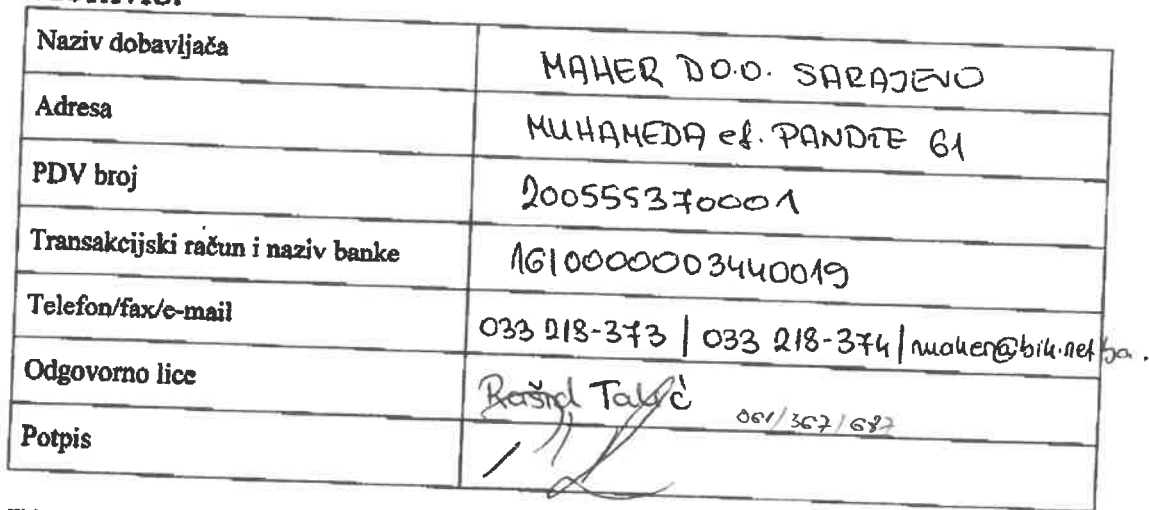 Naziv dobavljača MAHER D.O.O. SARAJEVO
Adresa MUHAMEDA ef. PANDŽE 61
PDV broj 200555370001
Transakcijski račun i naziv banke 1610000003440019
Telefon/fax/e-mail 033 218-373 | 033 218-374 | maher@bih.net.ba.
Odgovorno lice Rašid 061/367/687
Potpis